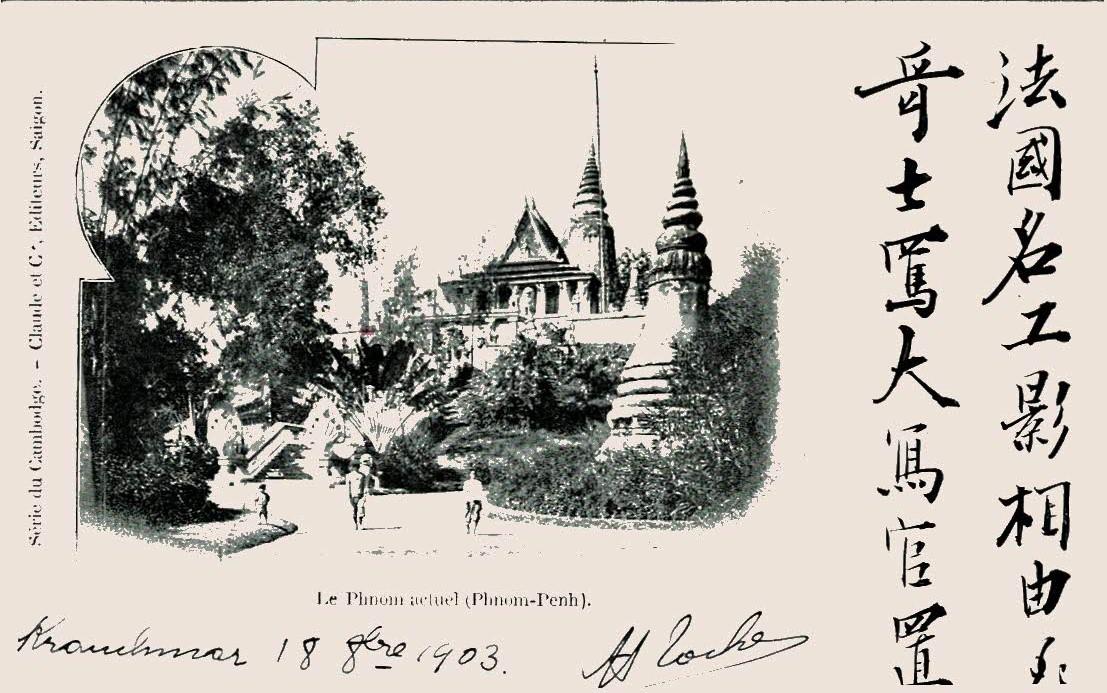 Série du Cambodge. – Claude et Cie, Editeurs, Saigon.
法國名工影相由
哥士罵大寫官置
Le Phnom actuel (Phnom-Penh).
Krauchmar 18 8bre 1903.